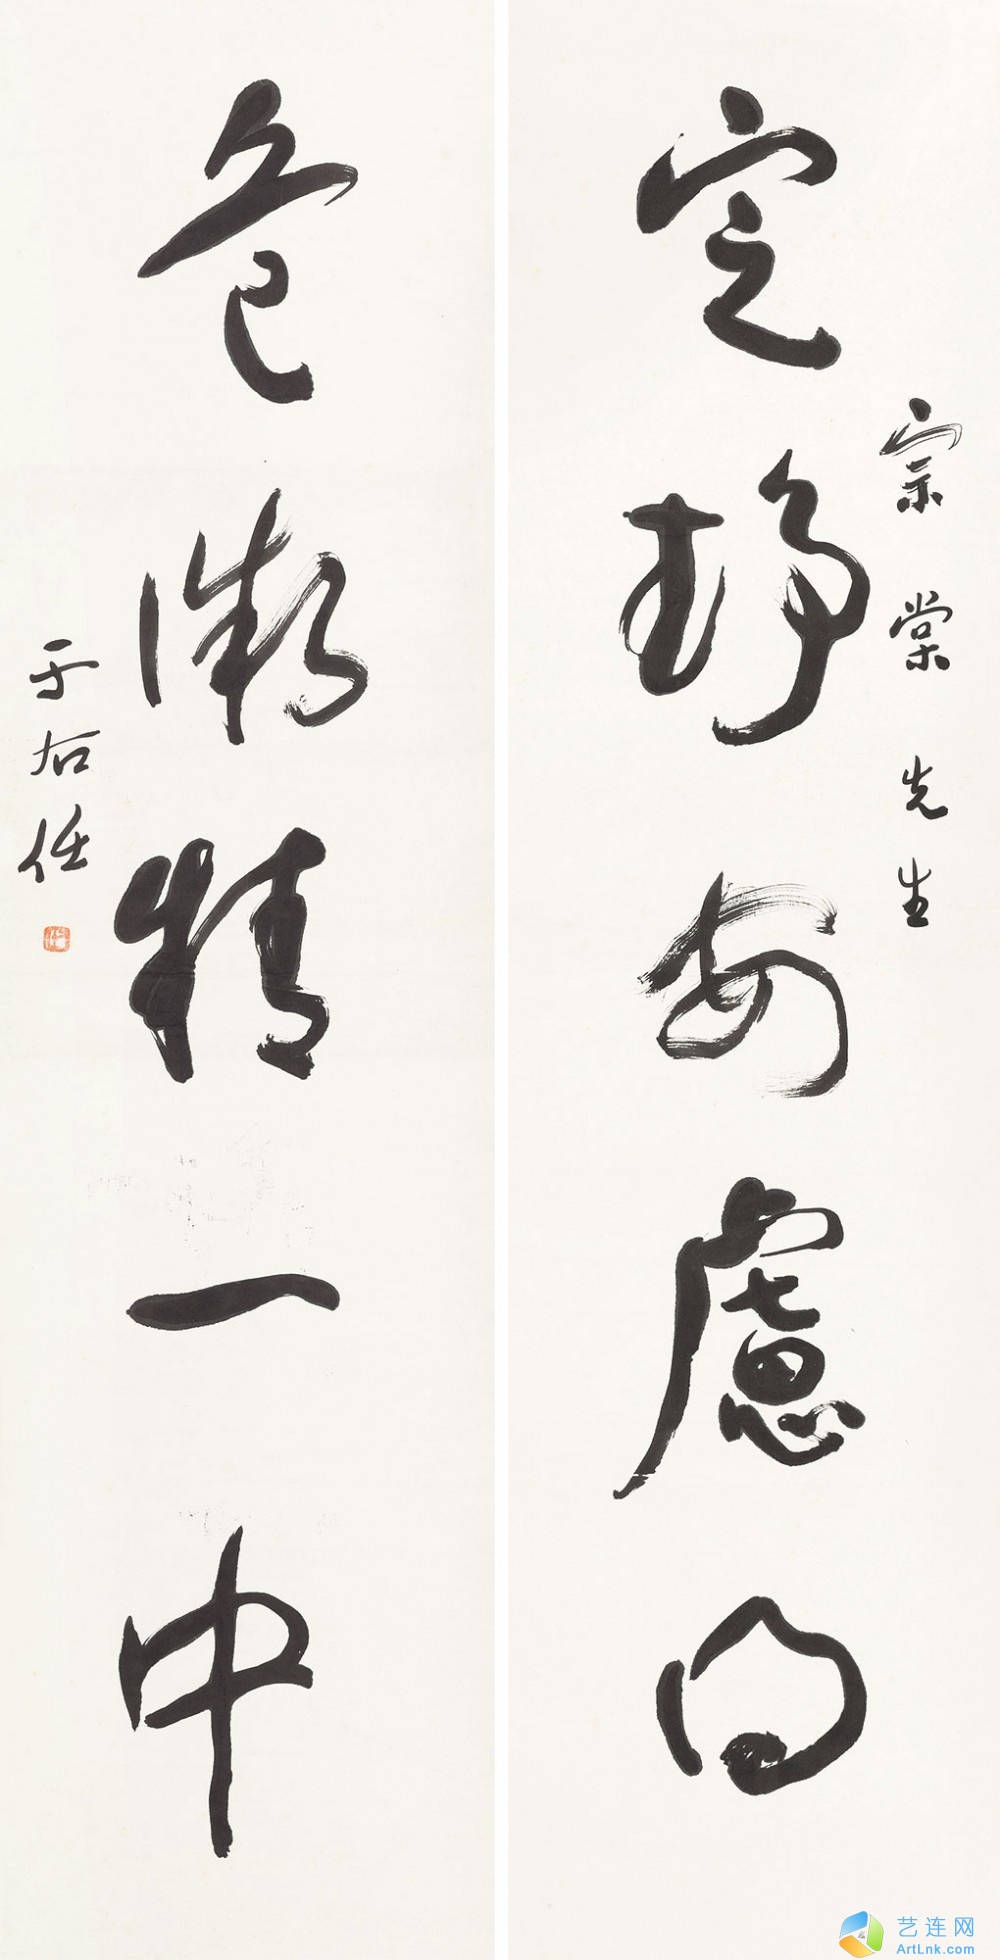 宗棠先生
定静安慮得
危微精一中
于右任
艺连网
ArtLnk.com